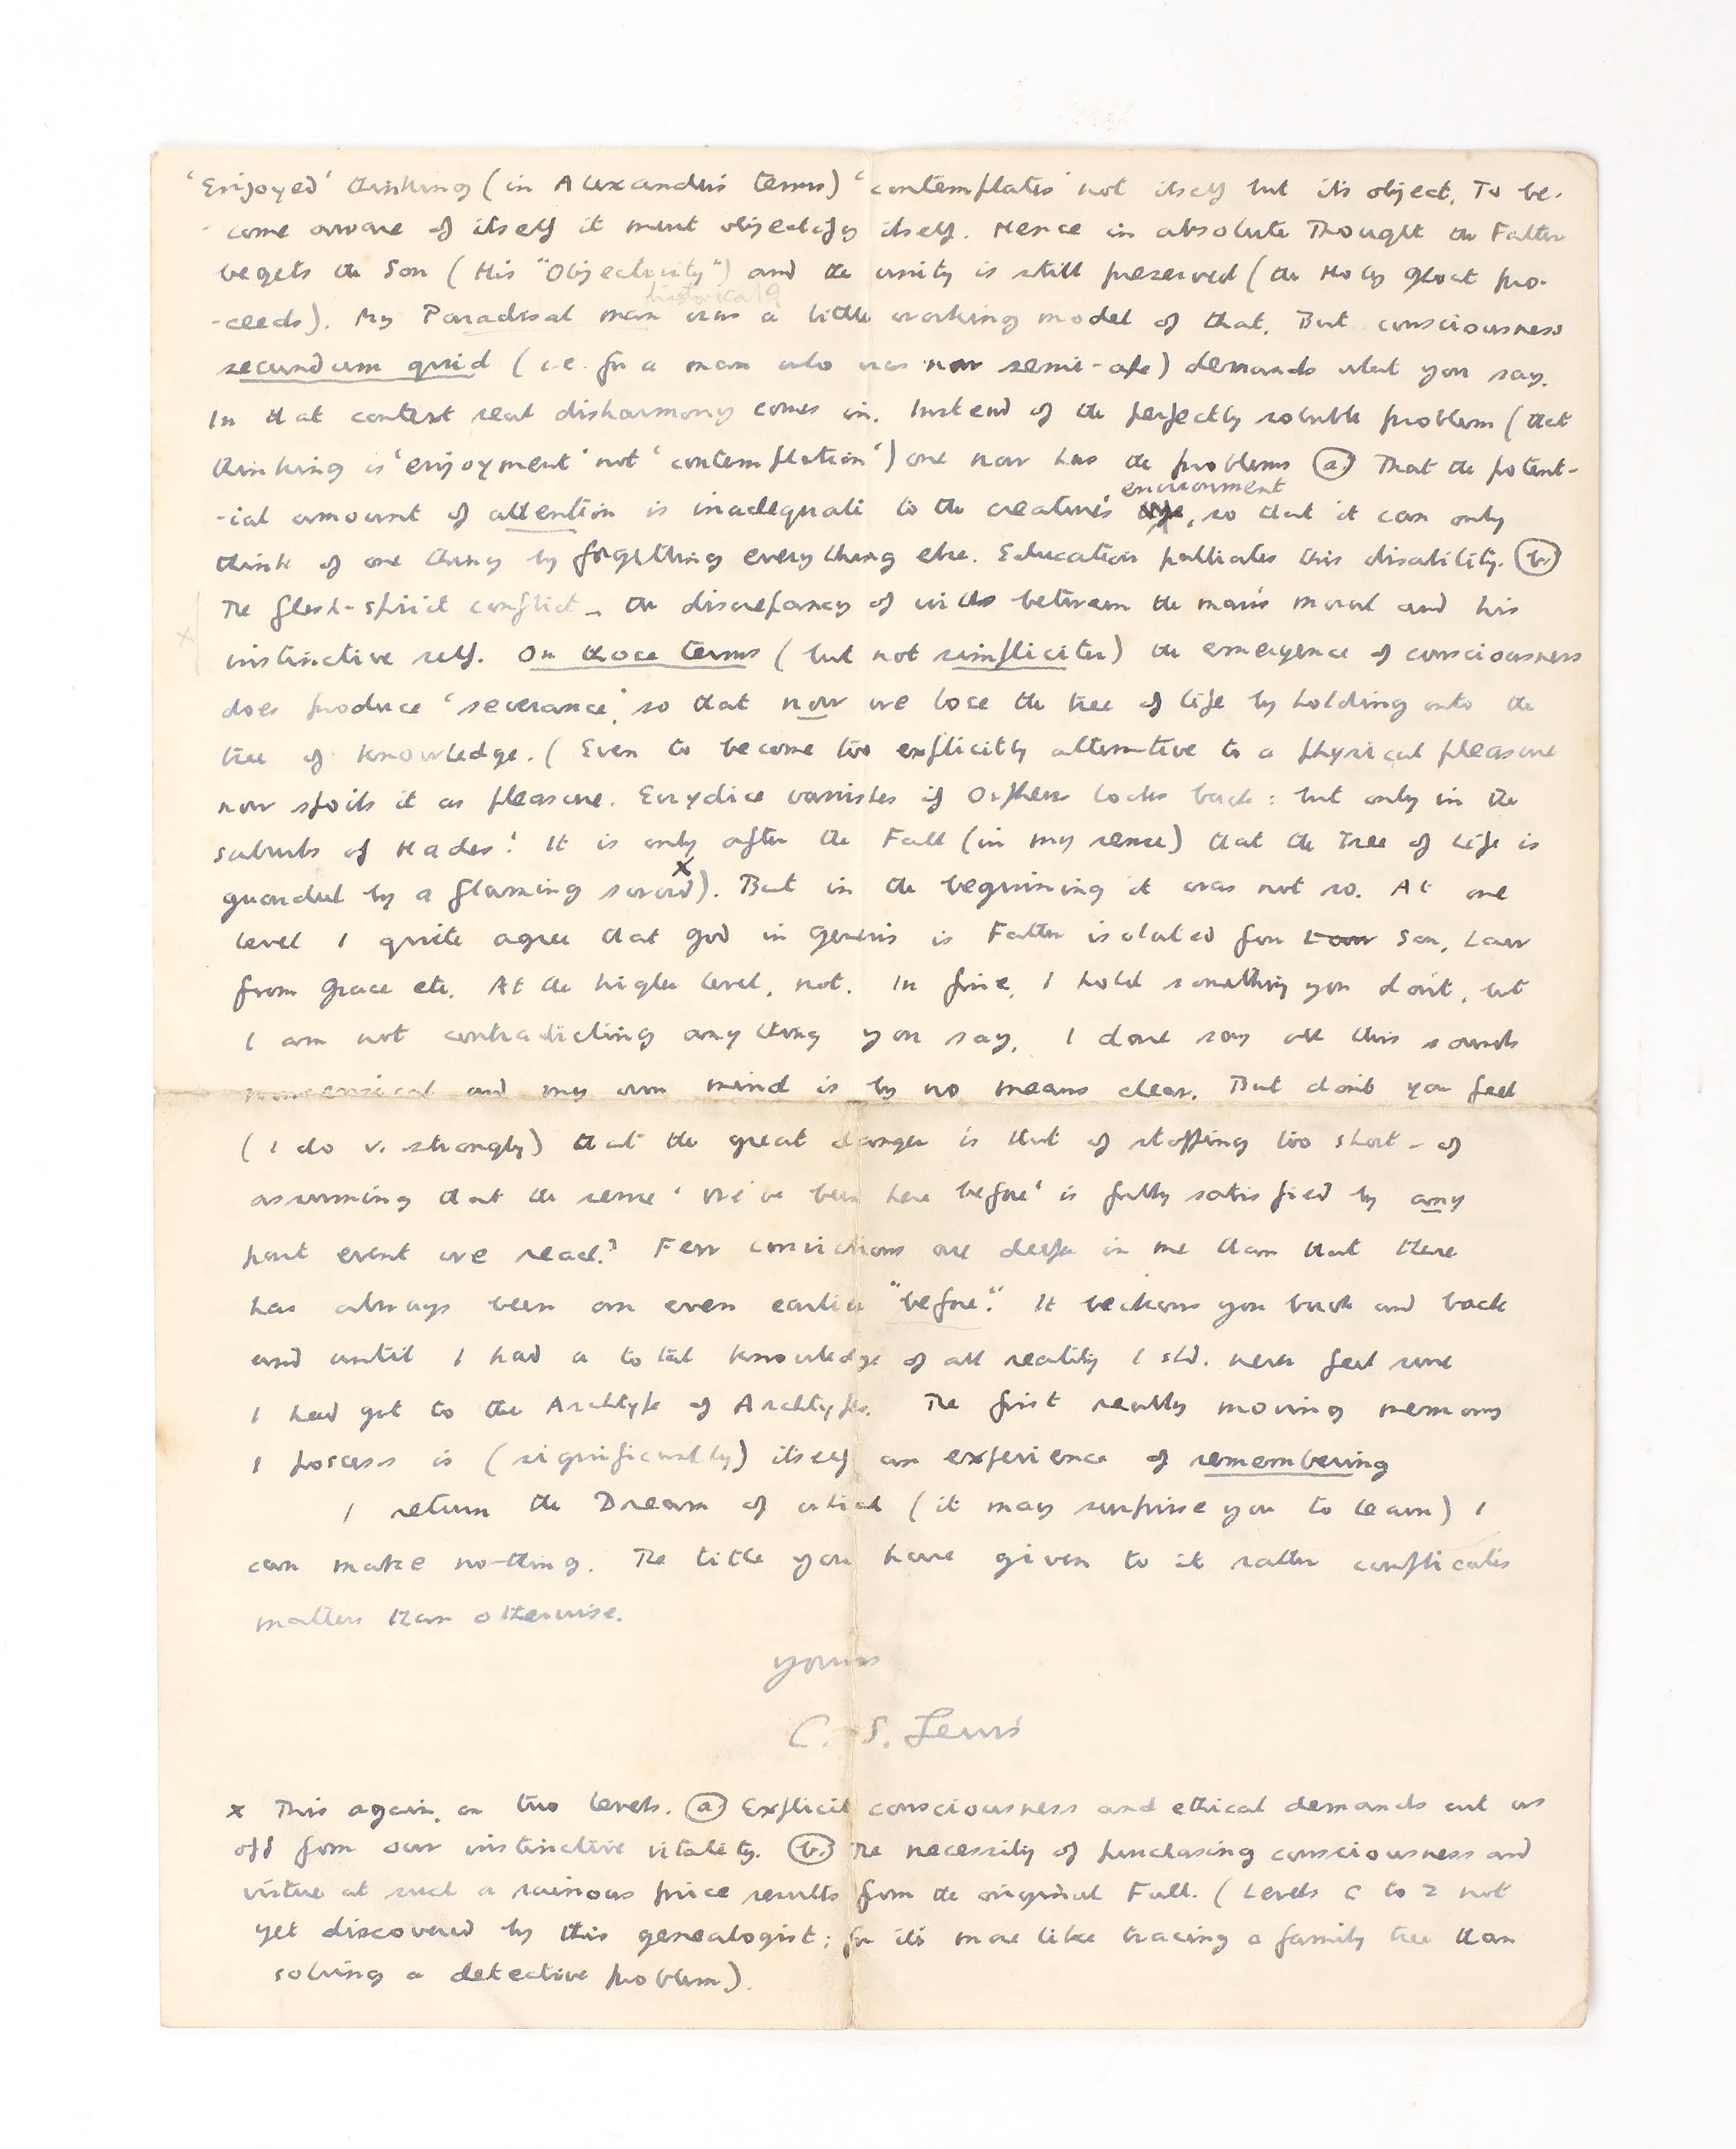 'Enjoyed' thinking (in Alexander's terms) 'contemplates' not itself but its object. To be-
-come aware of itself it must objectify itself. Hence in absolute Thought the Father
begets the Son (His "Objectivity") and the unity is still preserved (the Holy Ghost pro-
historical?
-ceeds). My Paradisal man was a little working model of that. But consciousness
secundum quid (i.e. for a man who was now semi-ape) demands what you say.
In that context real disharmony comes in. Instead of the perfectly soluble problem (that
thinking is 'enjoyment' not 'contemplation') one now has the problems (a) That the potent-
environment
-ial amount of attention is inadequate to the creature's , so that it can only
think of one thing by forgetting everything else. Education palliates this disability. (b.)
The flesh-spirit conflict – the discrepancy of wills between the man's moral and his
instinctive self. On those terms (but not simpliciter) the emergence of consciousness
does produce 'severance', so that now we lose the tree of life by holding onto the
tree of knowledge. (Even to become too explicitly attentive to a physical pleasure
now spoils it as pleasure. Eurydice vanishes if Orpheus looks back: but only in the
suburbs of Hades! It is only after the Fall (in my sense) that the Tree of Life is
guarded by a flaming sword x). But in the beginning it was not so. At one
level I quite agree that God in Genesis is Father isolated from Law Son, Law
from Grace etc. At the higher level, not. In fine, I hold something you don't, but
I am not contradicting anything you say. I dare say all this sounds
nonsensical and my own mind is by no means clear. But don't you feel
(I do v. strongly) that the great danger is that of stopping too short – of
assuming that the sense 'We've been here before' is fully satisfied by any
past event we reach? Few convictions are deeper in me than that there
has always been an even earlier "before". It beckons you back and back
and until I had a total knowledge of all reality I shd. never feel sure
I had got to the Archtype of Archtypes. The first really moving memory
I possess is (significantly) itself an experience of remembering
I return the Dream of which (it may surprise you to learn) I
can make no-thing. The title you have given to it rather complicates
matters than otherwise.
Yours
C. S. Lewis
x This again, on two levels. (a) Explicit consciousness and ethical demands cut us
off from our instinctive vitality. (b.) The necessity of purchasing consciousness and
virtue at such a ruinous price results from the original Fall. (Levels C to Z not
yet discovered by this genealogist; for it's more like tracing a family tree than
solving a detective problem).